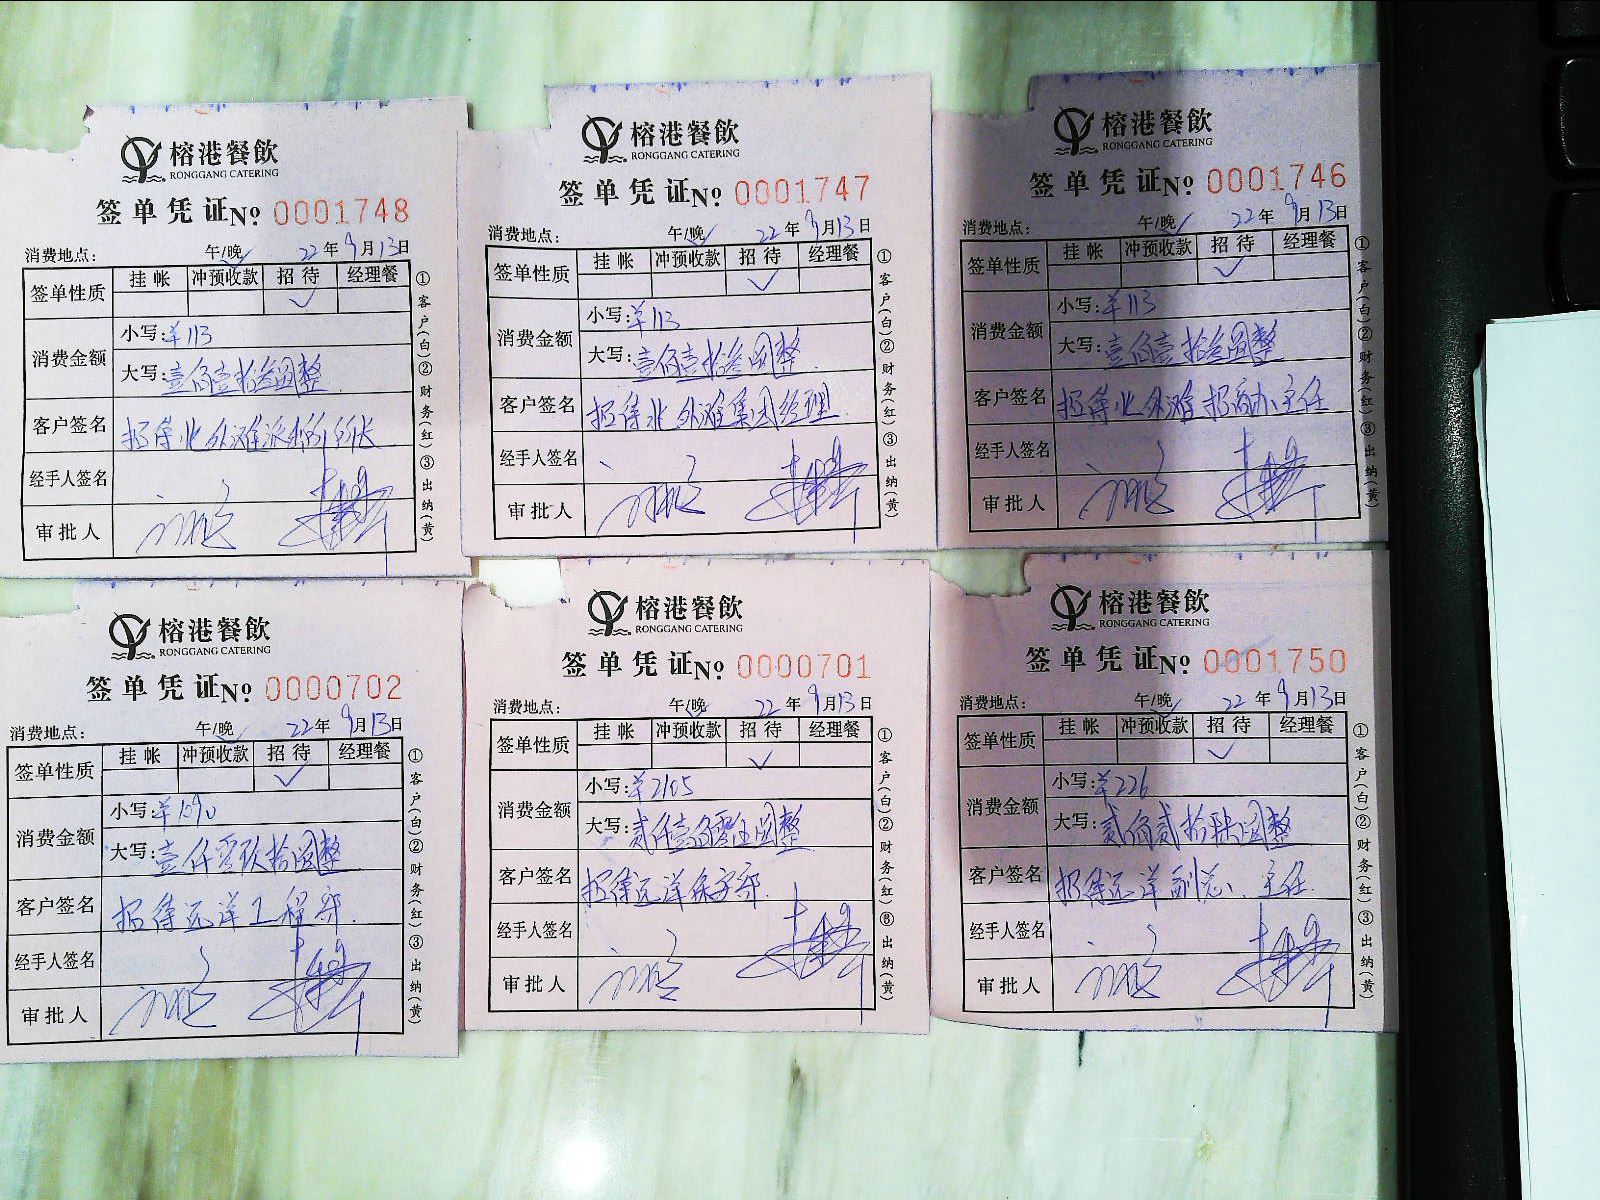 榕港餐飲
RONGGANG CATERING
签单凭证 № 0001748
消费地点: 午/晚 ✓ 22年9月13日
签单性质 挂帐 冲预收款 招待 经理餐
✓
消费金额 小写:¥113
大写:壹佰壹拾叁圆整
客户签名 招待北外滩派
经手人签名
审批人
①客户(白)②财务(红)③出纳(黄)
榕港餐飲
RONGGANG CATERING
签单凭证 № 0001747
消费地点: 午/晚 ✓ 22年9月13日
签单性质 挂帐 冲预收款 招待 经理餐
✓
消费金额 小写:¥113
大写:壹佰壹拾叁圆整
客户签名 招待北外滩集团经理
经手人签名
审批人
①客户(白)②财务(红)③出纳(黄)
榕港餐飲
RONGGANG CATERING
签单凭证 № 0001746
消费地点: 午/晚 ✓ 22年9月13日
签单性质 挂帐 冲预收款 招待 经理餐
✓
消费金额 小写:¥113
大写:壹佰壹拾叁圆整
客户签名 招待北外滩招商办主任
经手人签名
审批人
①客户(白)②财务(红)③出纳(黄)
榕港餐飲
RONGGANG CATERING
签单凭证 № 0000702
消费地点: 午/晚 ✓ 22年9月13日
签单性质 挂帐 冲预收款 招待 经理餐
✓
消费金额 小写:¥1090
大写:壹仟零玖拾圆整
客户签名 招待远洋工程部.
经手人签名
审批人
①客户(白)②财务(红)③出纳(黄)
榕港餐飲
RONGGANG CATERING
签单凭证 № 0000701
消费地点: 午/晚 ✓ 22年9月13日
签单性质 挂帐 冲预收款 招待 经理餐
✓
消费金额 小写:¥2105
大写:贰仟壹佰零伍圆整
客户签名 招待远洋保安部.
经手人签名
审批人
①客户(白)②财务(红)⑧出纳(黄)
榕港餐飲
RONGGANG CATERING
签单凭证 № 0001750
消费地点: 午/晚 ✓ 22年9月13日
签单性质 挂帐 冲预收款 招待 经理餐
✓
消费金额 小写:¥226
大写:贰佰贰拾陆圆整
客户签名 招待远洋副总、主任.
经手人签名
审批人
①客户(白)②财务(红)③出纳(黄)